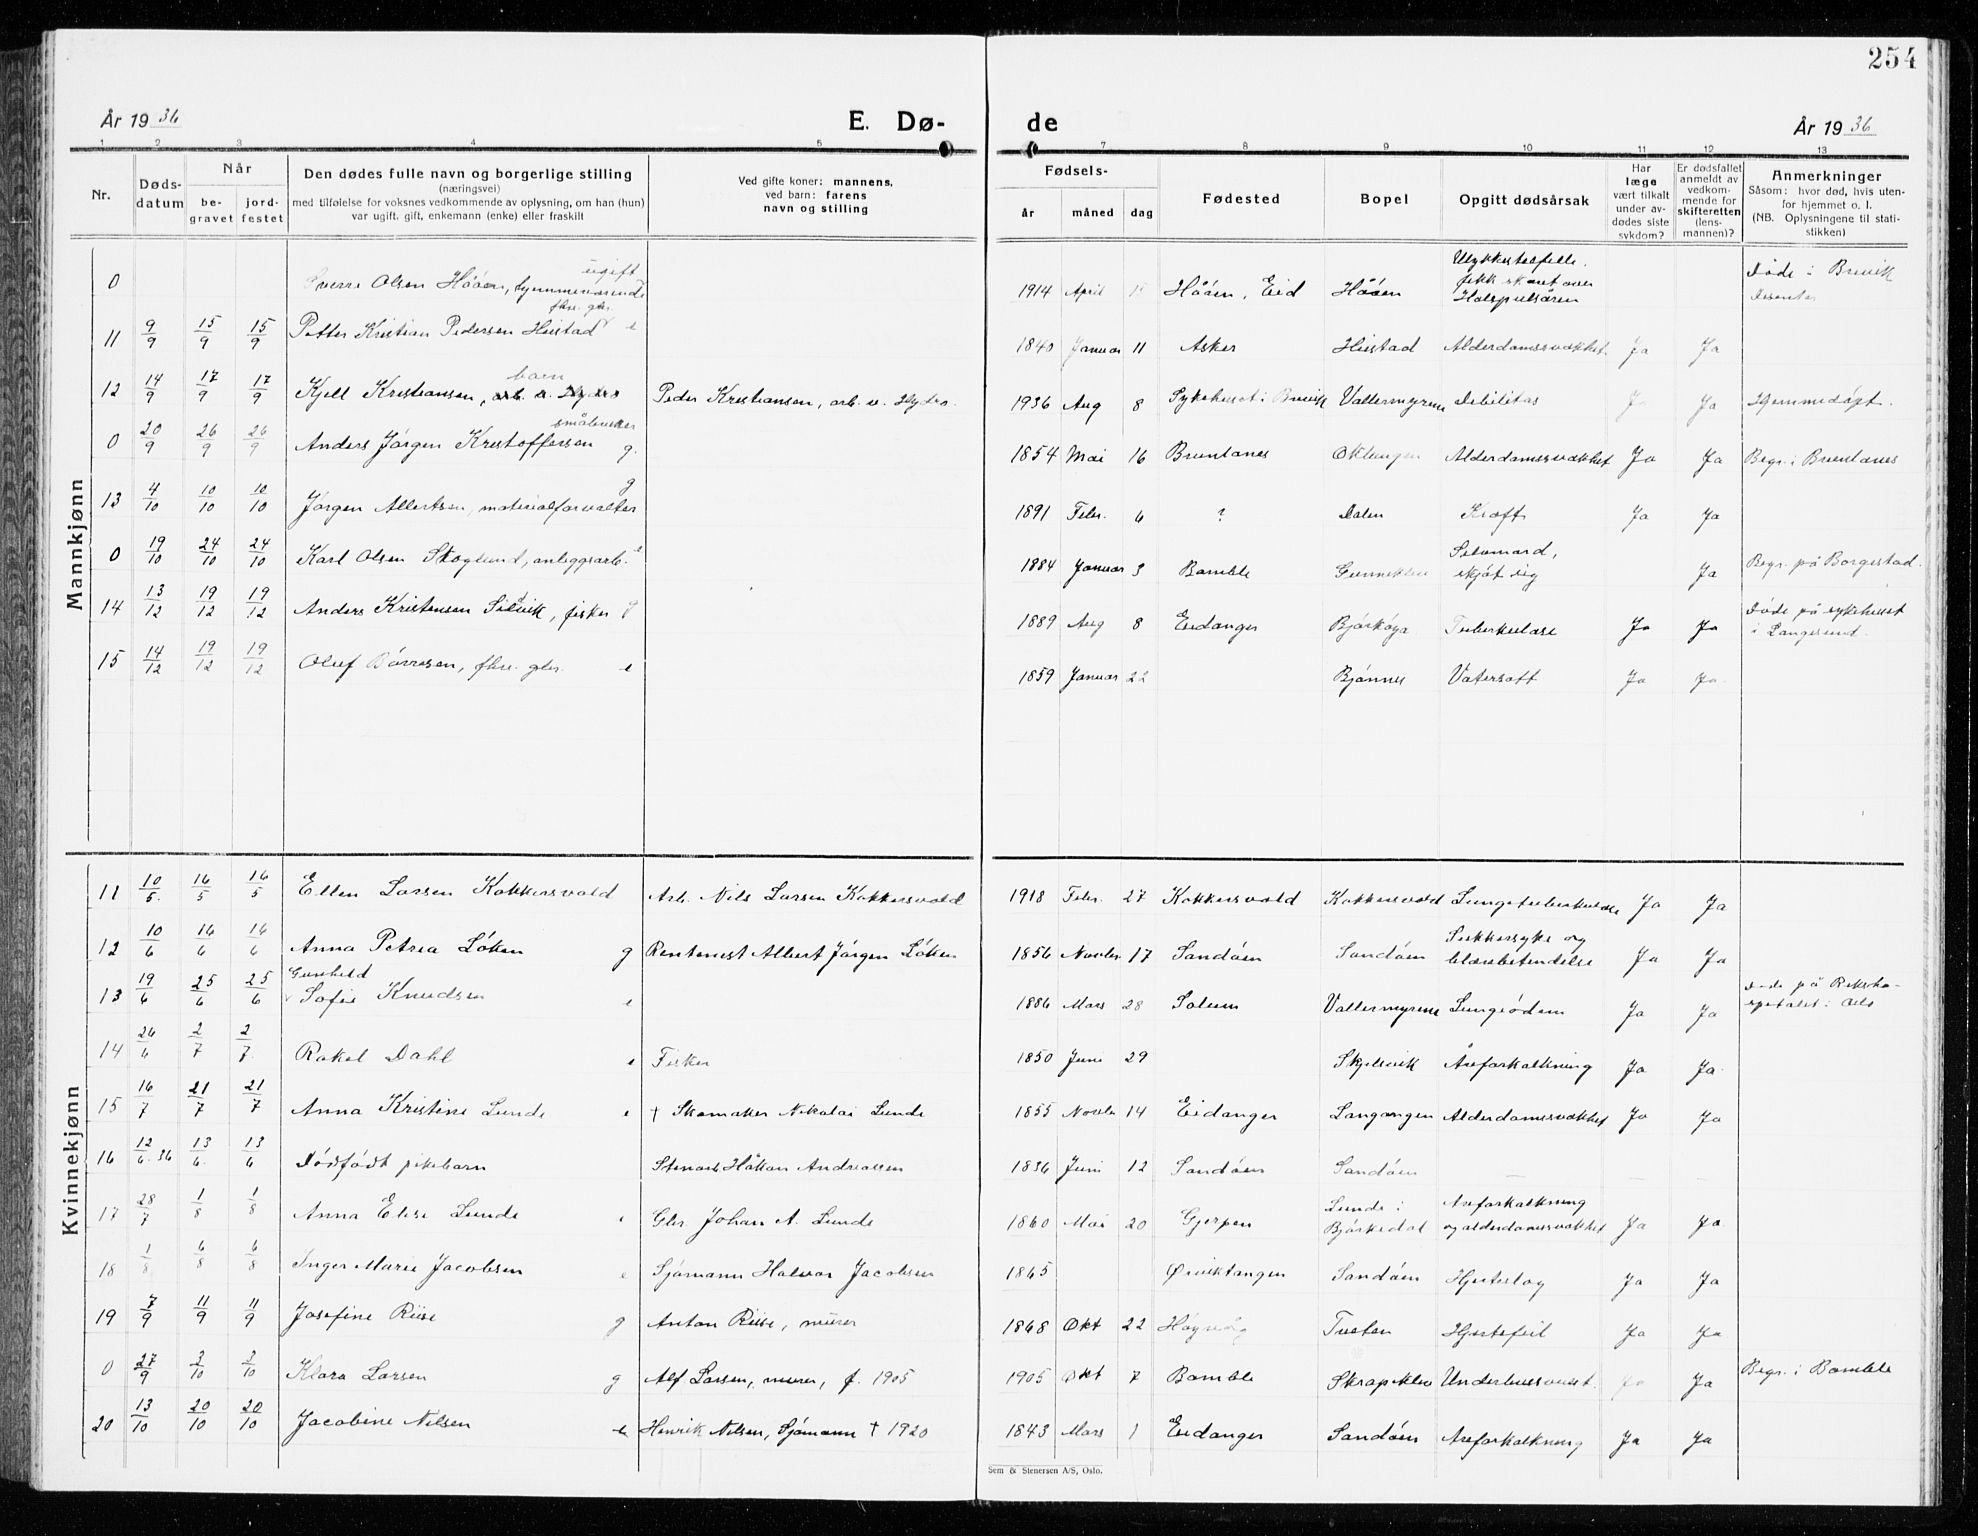 254
År 1936
E. Dø-
de
År 1936
1 2 3 4 5 7 8 9 10 11 12 13
Nr.
Døds-
datum
Når
be-
gravet
jord-
festet
Den dødes fulle navn og borgerlige stilling
(næringsvei)
med tilføielse for voksnes vedkommende av oplysning, om han (hun)
var ugift, gift, enkemann (enke) eller fraskilt
Ved gifte koner: mannens,
ved barn: farens
navn og stilling
Fødsels-
år måned dag
Fødested
Bopel
Opgitt dødsårsak
Har
læge
vært tilkalt
under av-
dødes siste
sykdom?
Er dødsfallet
anmeldt av
vedkom-
mende for
skifteretten
(lens-
mannen)?
Anmerkninger
Såsom: hvor død, hvis uten-
for hjemmet o. l.
(NB. Oplysningene til stati-
stikken)
Mannkjønn
0 Sverre Olsen Hååen, hjemmeværende ugift 1914 April 15 Hååen, Eid Hååen Ulykkestilfelle. fikk skaut over Halspulsåren Døde i Brevik
11 9/9 15/9 15/9 Petter Kristian Pedersen Heistad fhv. gbr. e 1840 Januar 11 Asker Heistad Alderdomssvakhet Ja Ja
12 14/9 17/9 17/9 Kjell Kristiansen, barn Peder Kristiansen, arb. v. Hydro. 1936 Aug 8 Sykehuset i Brevik Vallermyrene Debilitas Ja Ja Hjemmedøpt.
0 20/9 26/9 26/9 Anders Jørgen Kristoffersen småbruker g. 1854 Mai 16 Brunlanes Oklungen Alderdomssvakhet Ja Ja Begr. i Brunlanes
13 4/10 10/10 10/10 Jørgen Albertsen, materialforvalter g 1891 Febr. 6 ? Dalen Kræft Ja Ja
0 19/10 24/10 24/10 Karl Olsen Skoglund, anleggsarb. 1884 Januar 3 Bamble Gunneklev Selvmord, skjøt sig Ja Begr. på Borgestad.
14 13/12 19/12 19/12 Anders Kristensen Silvik, fisker g 1889 Aug 8 Eidanger Bjørkøya Tuberkulose Ja Ja Døde på sykehuset i Langesund.
15 14/12 19/12 19/12 Oluf Børresen, fhv. gbr. e 1859 Januar 22 Bjønnes Vatersott Ja Ja
Kvinnekjønn
11 10/5 16/5 16/5 Ellen Larsen Kokkersvold Arb. Nils Larsen Kokkersvold 1918 Febr. 27 Kokkersvold Kokkersvold Lungetuberkulose Ja Ja
12 10/6 16/6 16/6 Anna Petrea Løken g Rentenist Albert Jørgen Løken 1856 Novbr 17 Sandøen Sandøen Sukkersyke og blærebetendelse Ja Ja
13 19/6 25/6 25/6 Gunhild Sofie Knudsen e 1886 Mars 28 Solum Vallermyrene Lungeødem Ja Ja Døde på Rikshospitalet i Oslo
14 26/6 2/7 2/7 Rakel Dahl e Fisker 1850 Juni 29 Skjelsvik Åreforkalkning Ja Ja
15 16/7 21/7 21/7 Anna Kristine Lunde e † Skomaker Nikolai Lunde 1855 Novbr 14 Eidanger Langangen Alderdomssvakhet Ja Ja
16 12/6.36 13/6 13/6 Dødfødt pikebarn Håkon Andreassen 1836 Juni 12 Sandøen Sandøen — — —
17 28/7 1/8 1/8 Anna Elise Lunde e Gbr. Johan A. Lunde 1860 Mai 20 Gjerpen Lunde i Bjørkedal Åreforkalkning og alderdomssvakhet Ja Ja
18 1/8 6/8 6/8 Inger Marie Jacobsen e Sjømann Halvor Jacobsen 1865 Ørviktangen Sandøen Hjerteslag Ja Ja
19 7/9 11/9 11/9 Josefine Riise g Anton Riise, murer 1868 Okt 22 Tveten Hjertefeil Ja Ja
0 27/9 3/10 3/10 Klara Larsen g Alf Larsen, murer, f. 1905 1905 Okt 7 Bamble Skrapeklev Underlivssvulst. Ja Ja Begr. i Bamble
20 13/10 20/10 20/10 Jacobine Nilsen e Henrik Nilsen, Sjømann † 1920 1843 Mars 1 Eidanger Sandøen Åreforkalkning Ja Ja
Sem & Stenersen A/S, Oslo.